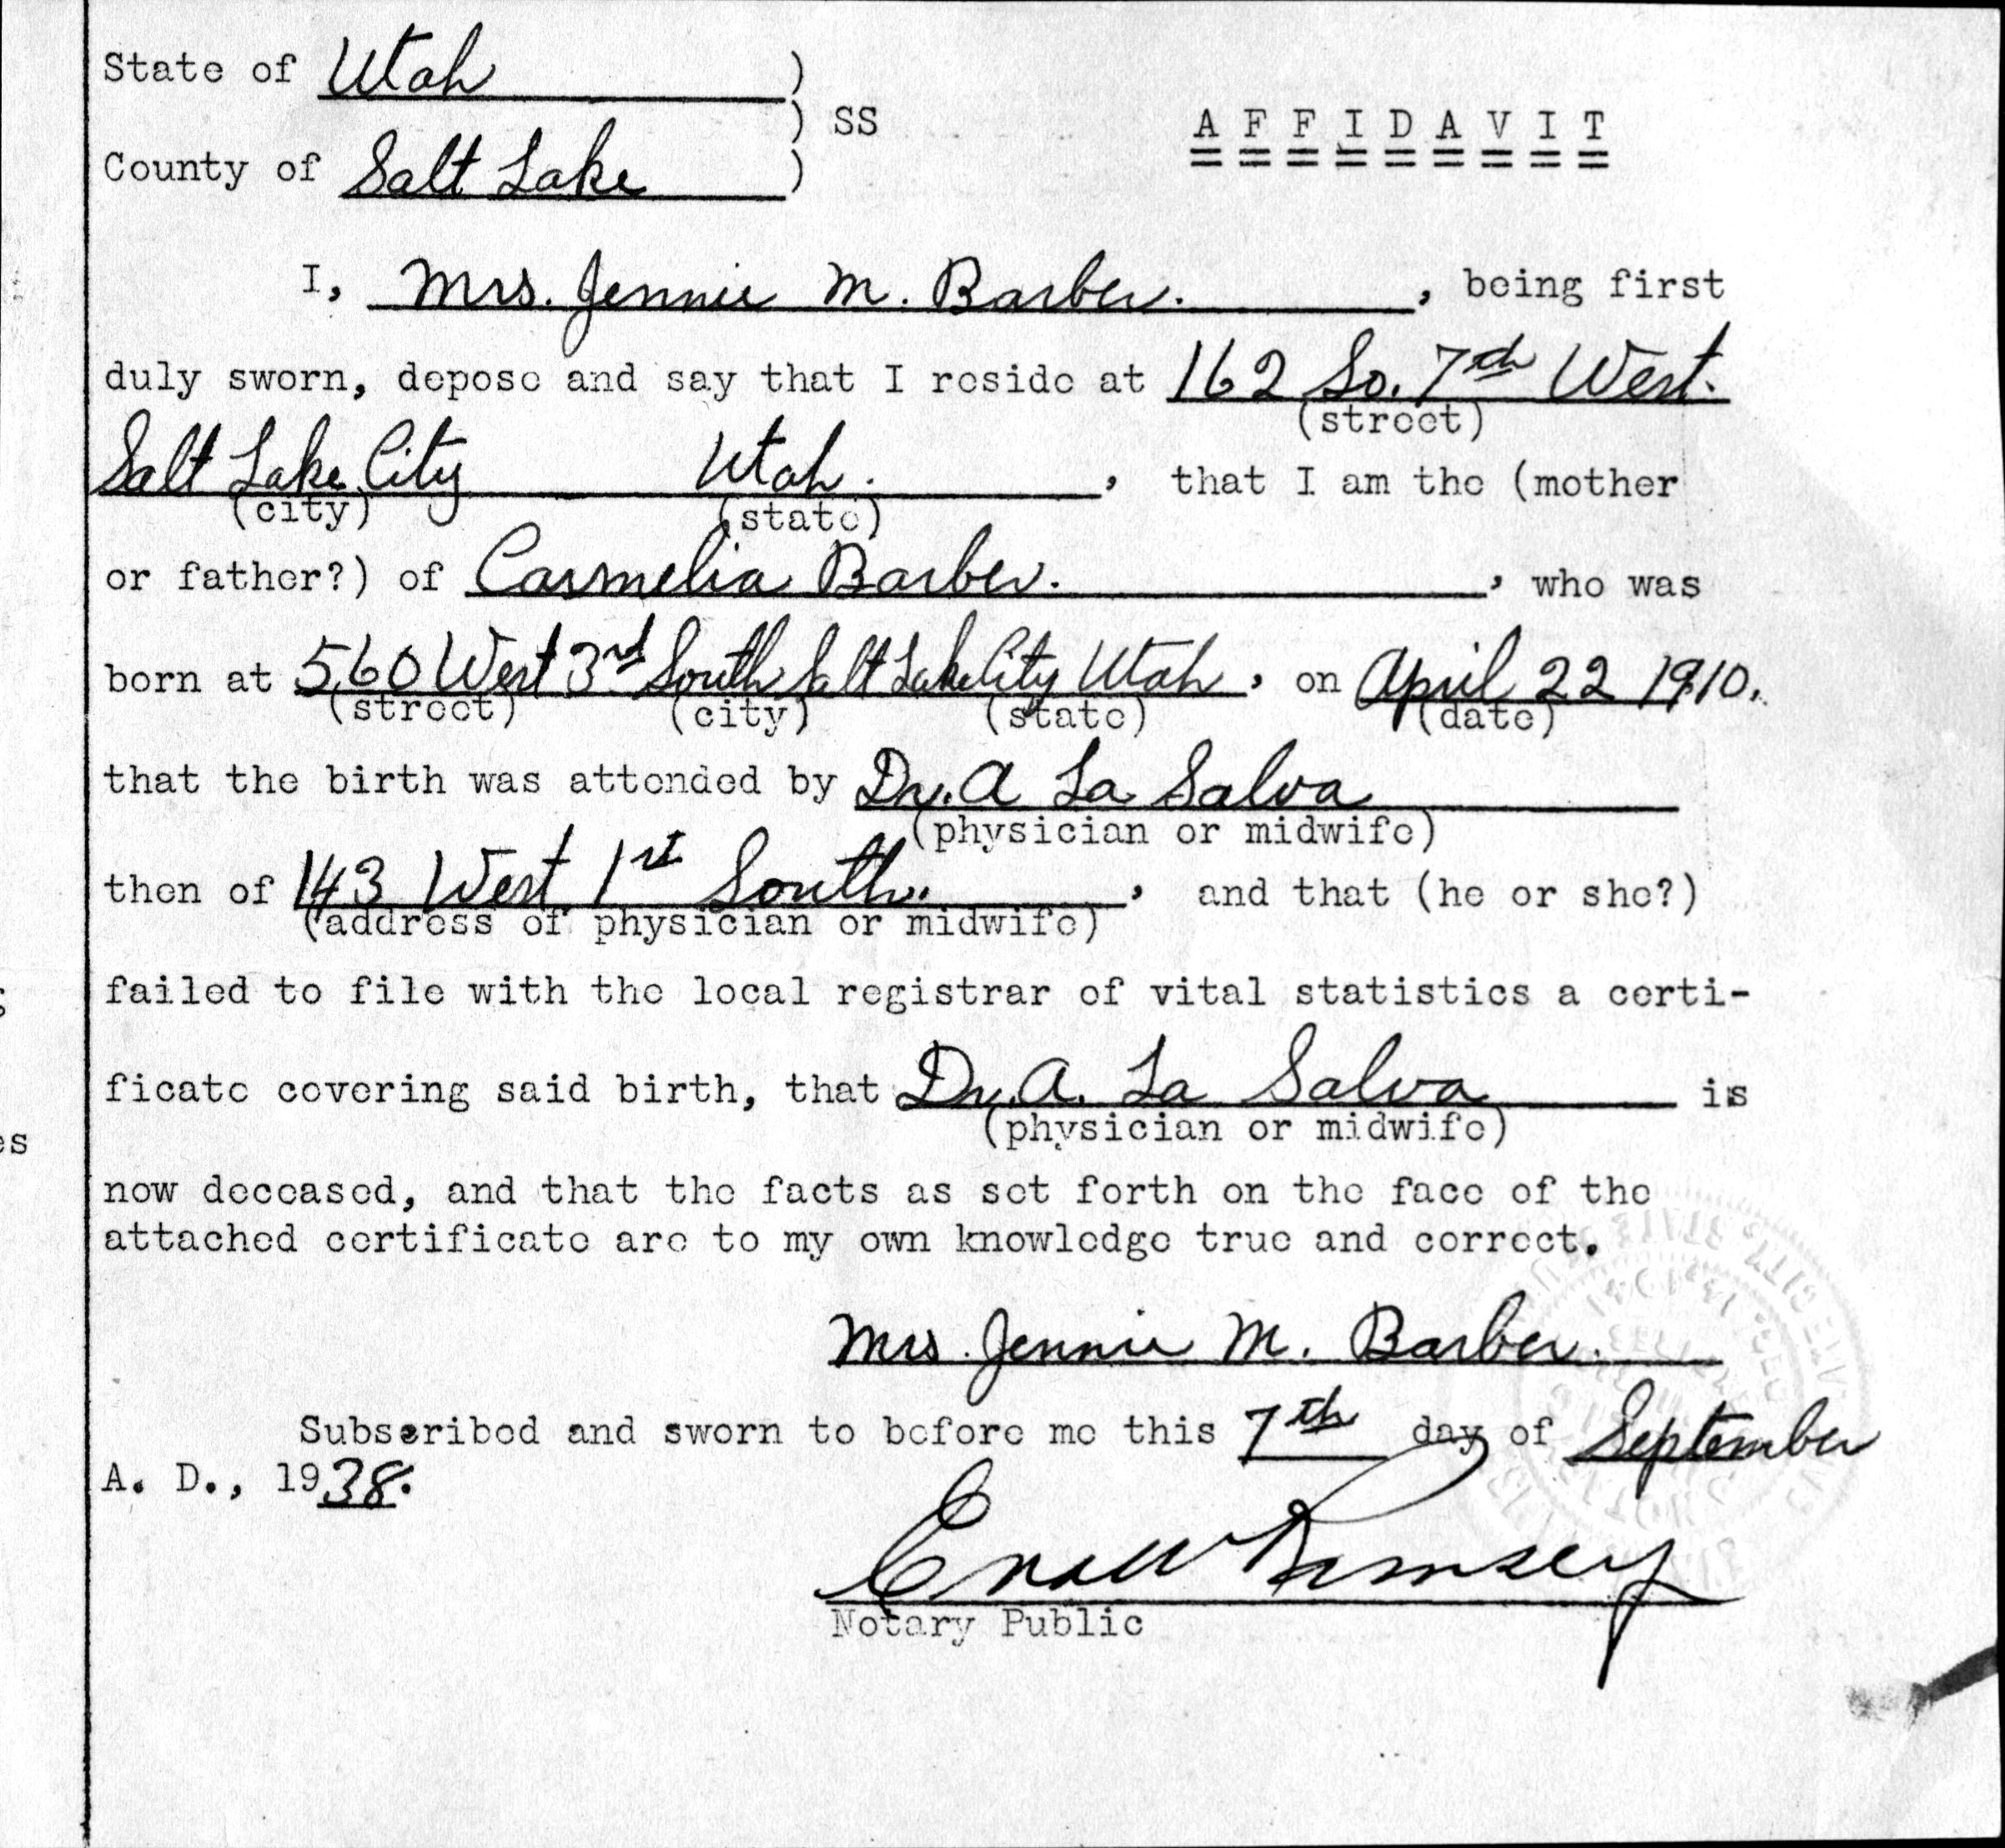 State of Utah )
) SS
A F F I D A V I T
County of Salt Lake )
I, Mrs. Jennie M. Barber. , being first
duly sworn, depose and say that I reside at 162 So. 7th West.
(street)
Salt Lake City Utah. , that I am the (mother
(city) (state)
or father?) of Carmelia Barber. , who was
born at 560 West 3rd South Salt Lake City Utah , on April 22 1910.
(street) (city) (state) (date)
that the birth was attended by Dr. A La Salva
(physician or midwife)
then of 143 West 1st South. , and that (he or she?)
(address of physician or midwife)
failed to file with the local registrar of vital statistics a certi-
ficate covering said birth, that Dr. A. La Salva is
(physician or midwife)
now deceased, and that the facts as set forth on the face of the
attached certificate are to my own knowledge true and correct.
Mrs. Jennie M. Barber.
Subscribed and sworn to before me this 7th day of September
A. D., 1938.
Ramsey
Notary Public
es